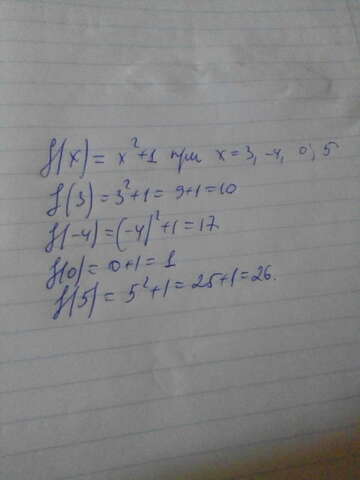 f(x) = x²+1 при x=3, -4, 0, 5
f(3) = 3²+1 = 9+1 = 10
f(-4) = (-4)²+1 = 17
f(0) = 0+1 = 1
f(5) = 5²+1 = 25+1 = 26.